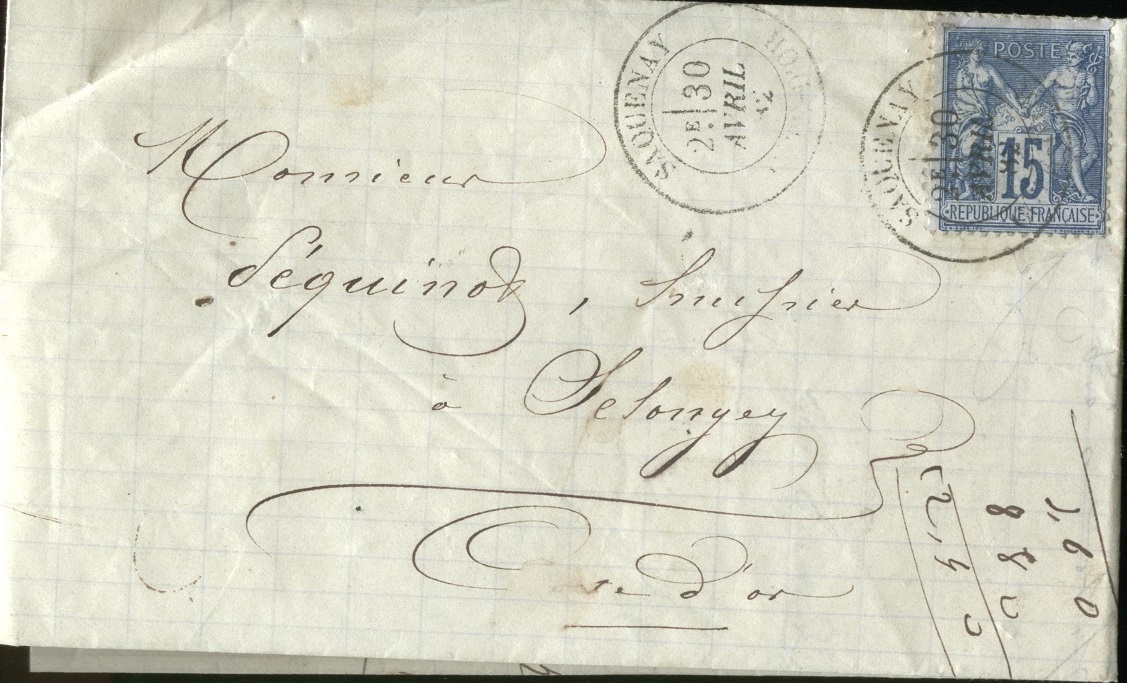 SAQUENAY
2E 30
AVRIL
POSTE
15
REPUBLIQUE FRANÇAISE
SAQUENAY
2E 30
AVRIL
Monsieur
Séquinot, huissier
à Selongey
Côte d'or